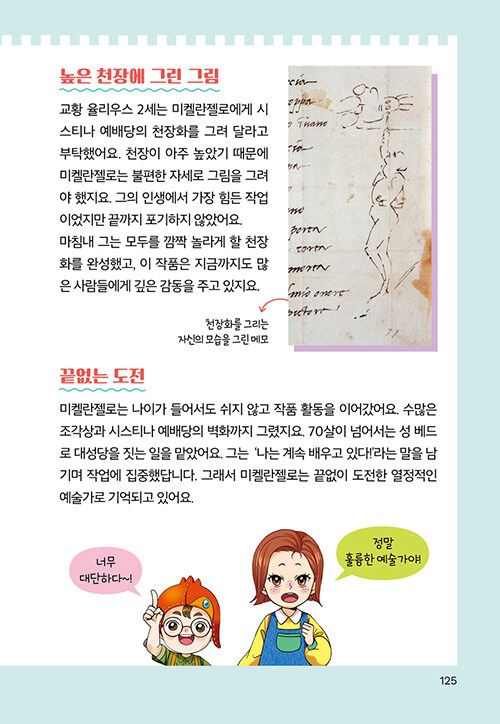 높은 천장에 그린 그림
교황 율리우스 2세는 미켈란젤로에게 시
스티나 예배당의 천장화를 그려 달라고
부탁했어요. 천장이 아주 높았기 때문에
미켈란젤로는 불편한 자세로 그림을 그려
야 했지요. 그의 인생에서 가장 힘든 작업
이었지만 끝까지 포기하지 않았어요.
마침내 그는 모두를 깜짝 놀라게 할 천장
화를 완성했고, 이 작품은 지금까지도 많
은 사람들에게 깊은 감동을 주고 있지요.
천장화를 그리는
자신의 모습을 그린 메모
끝없는 도전
미켈란젤로는 나이가 들어서도 쉬지 않고 작품 활동을 이어갔어요. 수많은
조각상과 시스티나 예배당의 벽화까지 그렸지요. 70살이 넘어서는 성 베드
로 대성당을 짓는 일을 맡았어요. 그는 ‘나는 계속 배우고 있다!’라는 말을 남
기며 작업에 집중했답니다. 그래서 미켈란젤로는 끝없이 도전한 열정적인
예술가로 기억되고 있어요.
너무
대단하다~!
정말
훌륭한 예술가야!
125